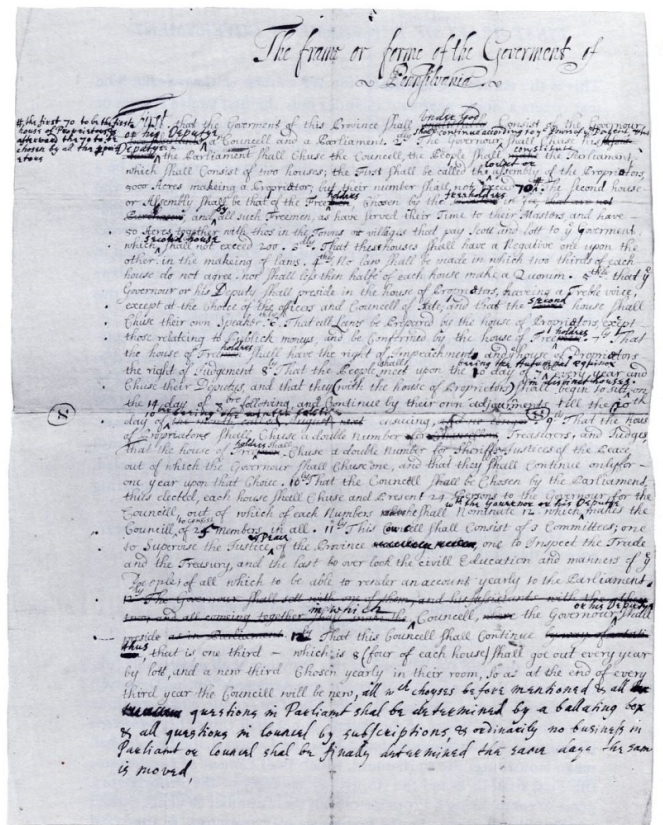 The frame or forme of the Goverment of
Pennsilvania.
#, the first 70 to be the first
house of Proprietors
afterward the 70 to be
chosen by all the
1st that the Goverment of this Province shall under God Consist of the Governour
or his Deputye a Councell and a Parliament. 2ly The Governour shall Chuse his
Deputye the Parliament shall Chuse the Councell, the People shall constitute the Parliament,
which shall Consist of two houses; the first shall be called the assembly of the Proprietors,
5000 Acres making a Proprietor, but their number shall not exceed 70. The second house
or Assembly shall be that of the Freeholders Chosen by the freeholders in ye
and all such Freemen, as have served their Time to their Masters and have
50 Acres together with thos in the Towns or villages that pay Scott and lott to ye Goverment
which second house shall not exceed 200. 3dly That thes houses shall have a Negative one upon the
other in the makeing of laws. 4thly No law shall be made in which two thirds of each
house do not agree, nor shall less then halfe of each house make a Quorum. 5thly that ye
Governour or his Deputy shall preside in the house of Proprietors, haveing a Treble voice,
except at the Choice of the officers and Councell of State, and that the second house shall
Chuse their own Speaker. 6 That all Laws be Prepared by the house of Proprietors, except
those relating to Publick moneys, and be Confirmed by the house of Freeholders 7ly That
the house of Freeholders shall have the right of Impeachments and ye house of Proprietors
the right of Judgement 8 That the People shall meet upon the day of every year and
Chuse their Deputys, and that they (with the house of Proprietors) shall begin to sitt on
in distinct houses
the day of following, and Continue by their own adjournments till the 20th
day of ensuing, 9th That the hous
of Propriators shall Chuse a double number Treasurers, and Judges
that the house of Freeholders shall Chuse a double number for Sheriffs Justices of the Peace
out of which the Governour shall Chuse one, and that they shall Continue only for
one year upon that Choice. 10ly That the Councell shall be Chosen by the Parliament,
thus elected, each house shall Chuse and Present 24 persons to the Governour for the
Councell, out of which of each Numbers the Governor or his Deputy shall Nominate 12, which makes the
Councell to consist of 24 members in all. 11ly This Councell shall Consist of 3 Committees; one
to Supervise the Justice & Peace of the Province one to Inspect the Trade
and the Treasury, and the last to over look the civill Education and manners of ye
People; of all which to be able to render an account yearly to the Parliament
12 The Governour shall sitt with one of them, and his assistants with the other
two, and all comeing together in which Councell, the Governour or his Deputy shall
preside 12ly That this Councell shall Continue
thus, that is one third - which is 8 (four of each house) shall goe out every year
by lott, and a new third Chosen yearly in their room, so as at the end of every
third year the Councill will be new, all wch chouses before mentioned & all
questions in Parliamt shal be determined by a balating box
& all questions in Councel by subscriptions, & ordinarily no business in
Parliamt or Councel shal be finally determined the same daye the same
is moved,